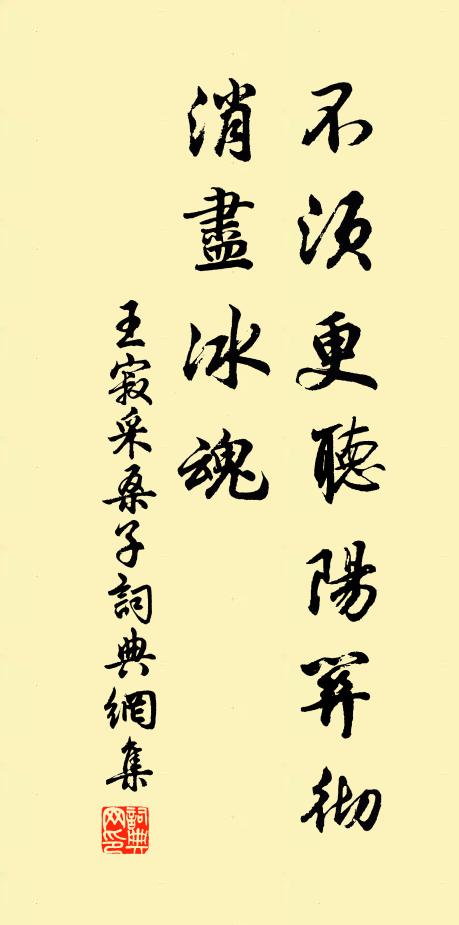 不須更聽陽關徹
消盡冰魂
王寂采桑子詞典網集
詞典
网印